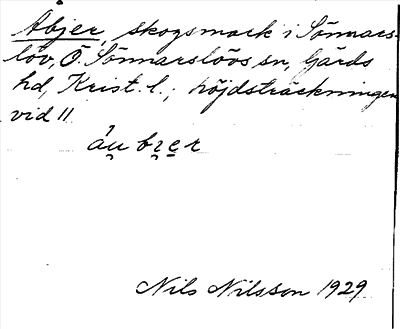 Abjer, skogsmark i Sönnars-
löv, Ö. Sönnarslövs sn, Gärds
hd, Krist. l.; höjdsträckningen
vid 11
áu̯ bɪ̯e̱r
Nils Nilsson 1929